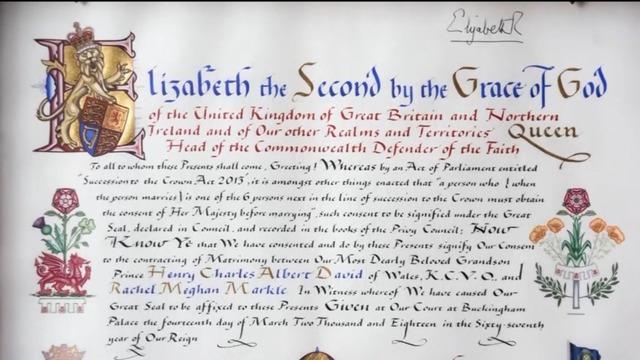 Elizabeth R
Elizabeth the Second by the Grace of God
of the United Kingdom of Great Britain and Northern
Ireland and of Our other Realms and Territories Queen
Head of the Commonwealth Defender of the Faith
To all to whom these Presents shall come, Greeting! Whereas by an Act of Parliament entitled
"Succession to the Crown Act 2013", it is amongst other things enacted that "a person who (when
the person marries) is one of the 6 persons next in the line of succession to the Crown must obtain
the consent of Her Majesty before marrying", such consent to be signified under the Great
Seal, declared in Council, and recorded in the books of the Privy Council; Now
Know Ye that We have consented and do by these Presents signify Our Consent
to the contracting of Matrimony between Our Most Dearly Beloved Grandson
Prince Henry Charles Albert David of Wales, K.C.V.O. and
Rachel Meghan Markle In Witness whereof We have caused Our
Great Seal to be affixed to these Presents Given at Our Court at Buckingham
Palace the fourteenth day of March Two Thousand and Eighteen in the Sixty-seventh
year of Our Reign